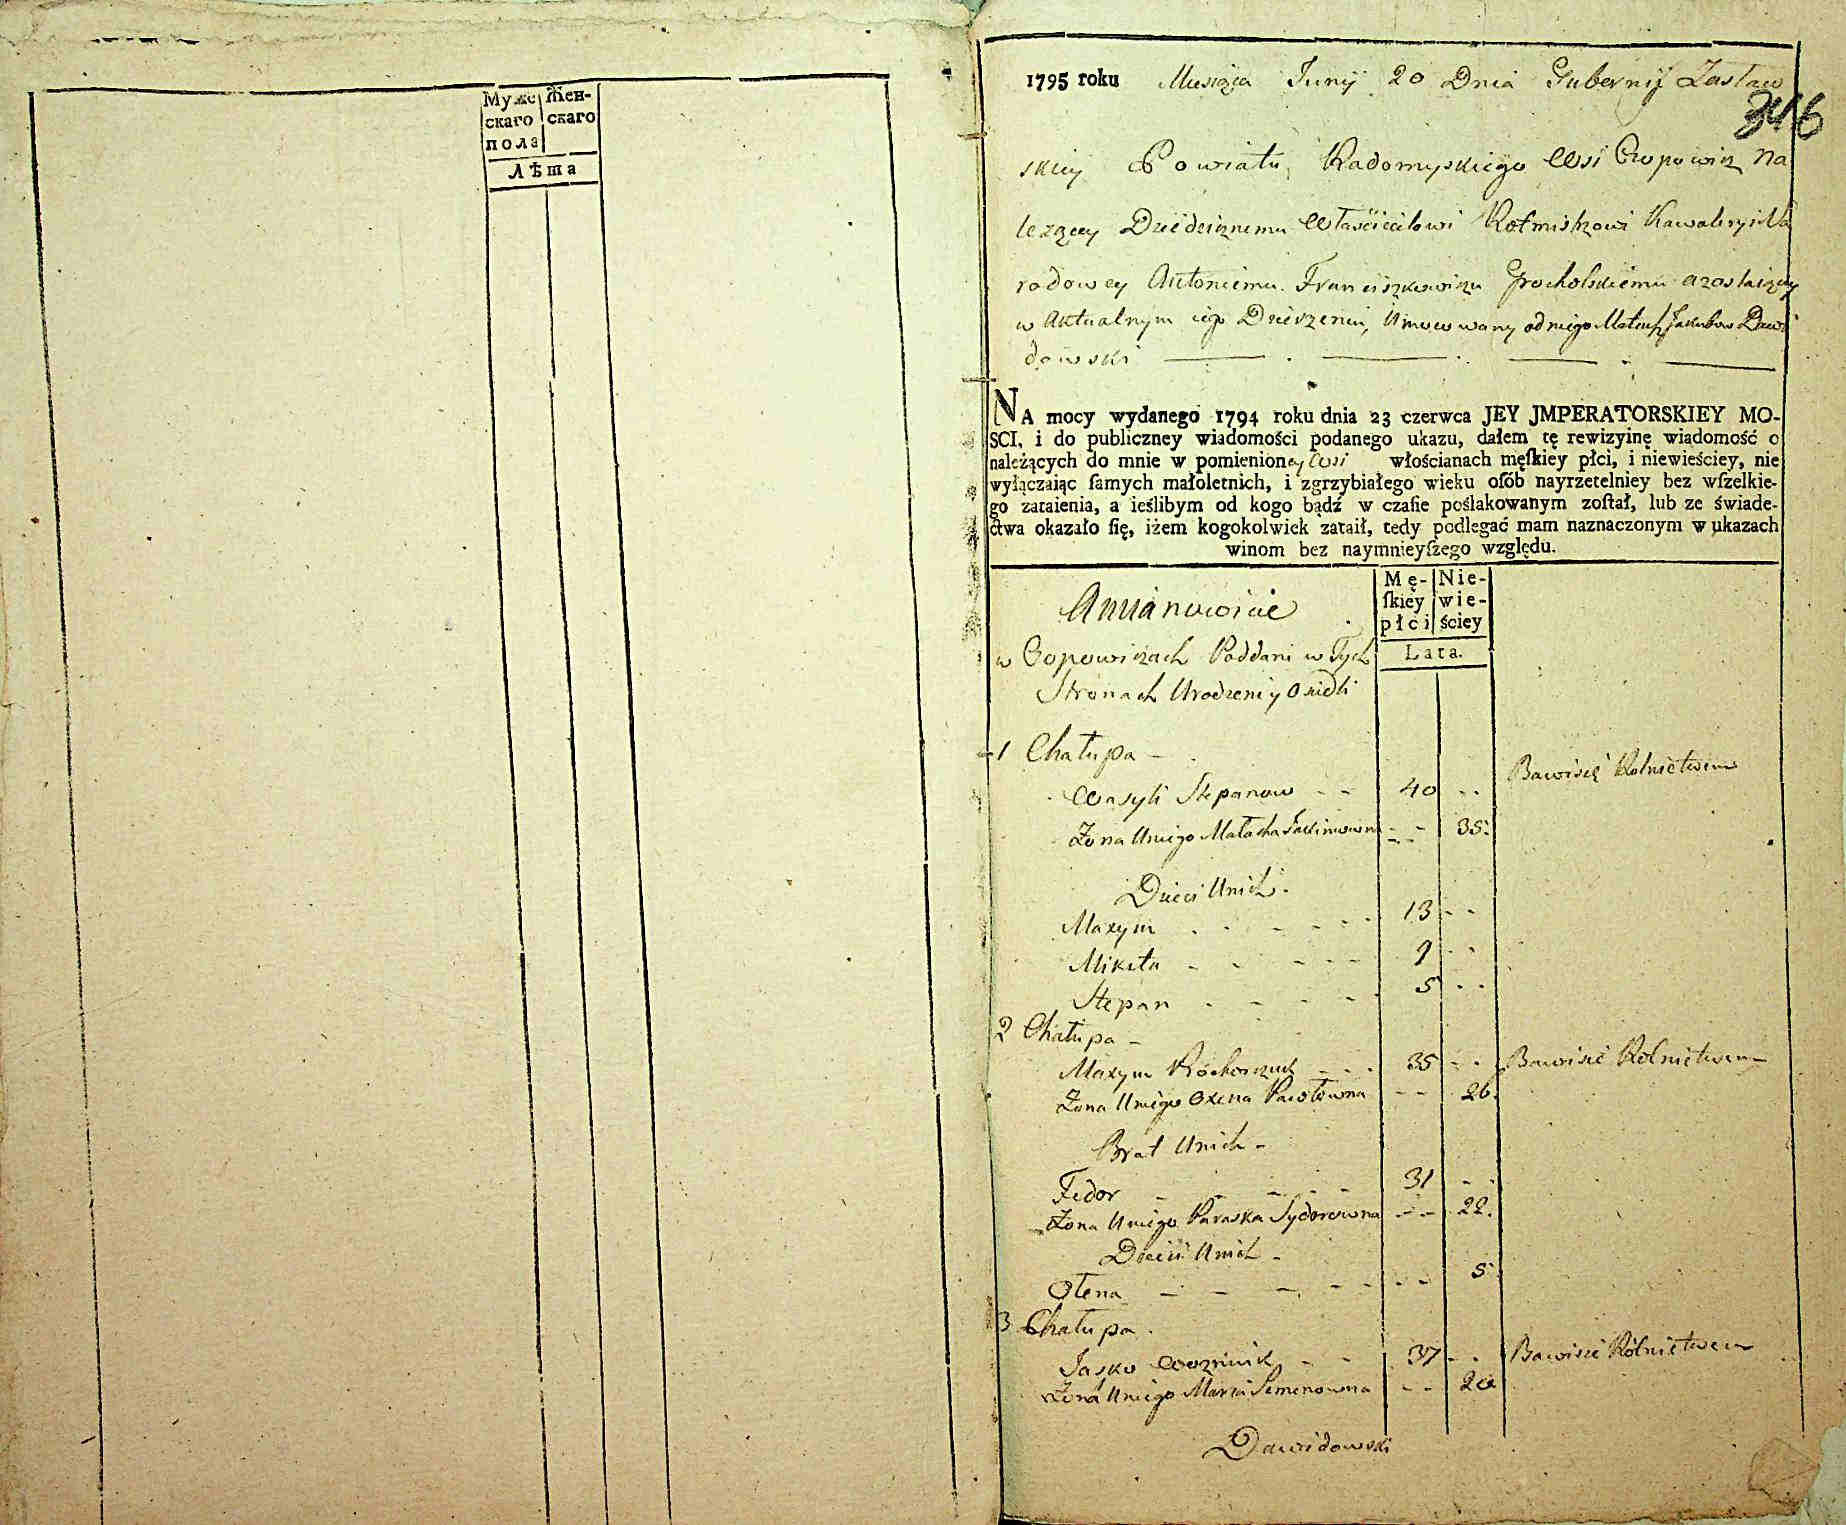 Муже Жен-
скаго скаго
пола
Лѣта
1795 roku Miesiąca Junij 20 Dnia Gubernij Zasław
346
skiey Powiatu Radomyskiego Wsi Czopowicz Na
lezącey Dziedzicznemu Właścicielowi Rotmistrzowi Kawaleryi Na
rodowey Antoniemu Franciszkowiczu Grocholskiemu a zostaiącey
w Aktualnym iego Dzierzeniu, Umocowany od niego Mateusz Jakubow Dawi
dowski
NA mocy wydanego 1794 roku dnia 23 czerwca JEY JMPERATORSKIEY MO-
SCI, i do publiczney wiadomości podanego ukazu, dałem tę rewizyinę wiadomość o
należących do mnie w pomienioney Wsi włościanach męſkiey płci, i niewieściey, nie
wyłączaiąc ſamych małoletnich, i zgrzybiałego wieku oſób nayrzetelniey bez wſzelkie-
go zataienia, a ieślibym od kogo bądź w czaſie poślakowanym zoſtał, lub ze świade-
ctwa okazało ſię, iżem kogokolwiek zataił, tedy podlegać mam naznaczonym w ukazach
winom bez naymnieyſzego względu.
Mę- Nie-
ſkiey wie-
płci ściey
Lata.
w Czopowiczach Poddani w Tych
Stronach Urodzeni y Osiedli
1 Chałupa
Wasyli Stepanow 40 Bawi się Rolnictwem
Żona U niego Małacha 35
Dzieci U nich
Maxym 13
Mikita 9
Stepan 5
2 Chałupa
Maxym 35 Bawi sie Rolnictwem
Żona U niego Oxena Pawłowna 26
Brat U nich
Fedor 31
Żona U niego Paraska Sydorowna 22
Dzieci U nich
Ołena 5
3 Chałupa
Jasko 37 Bawi sie Rolnictwem
Żona U niego Maria Semenowna
Dawidowski